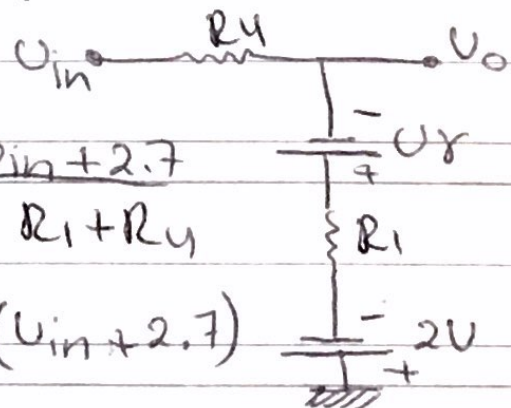 Uin R4 Uo
- Uγ
in + 2.7 +
R1 + R4 R1
(Uin + 2.7) - 2V
+